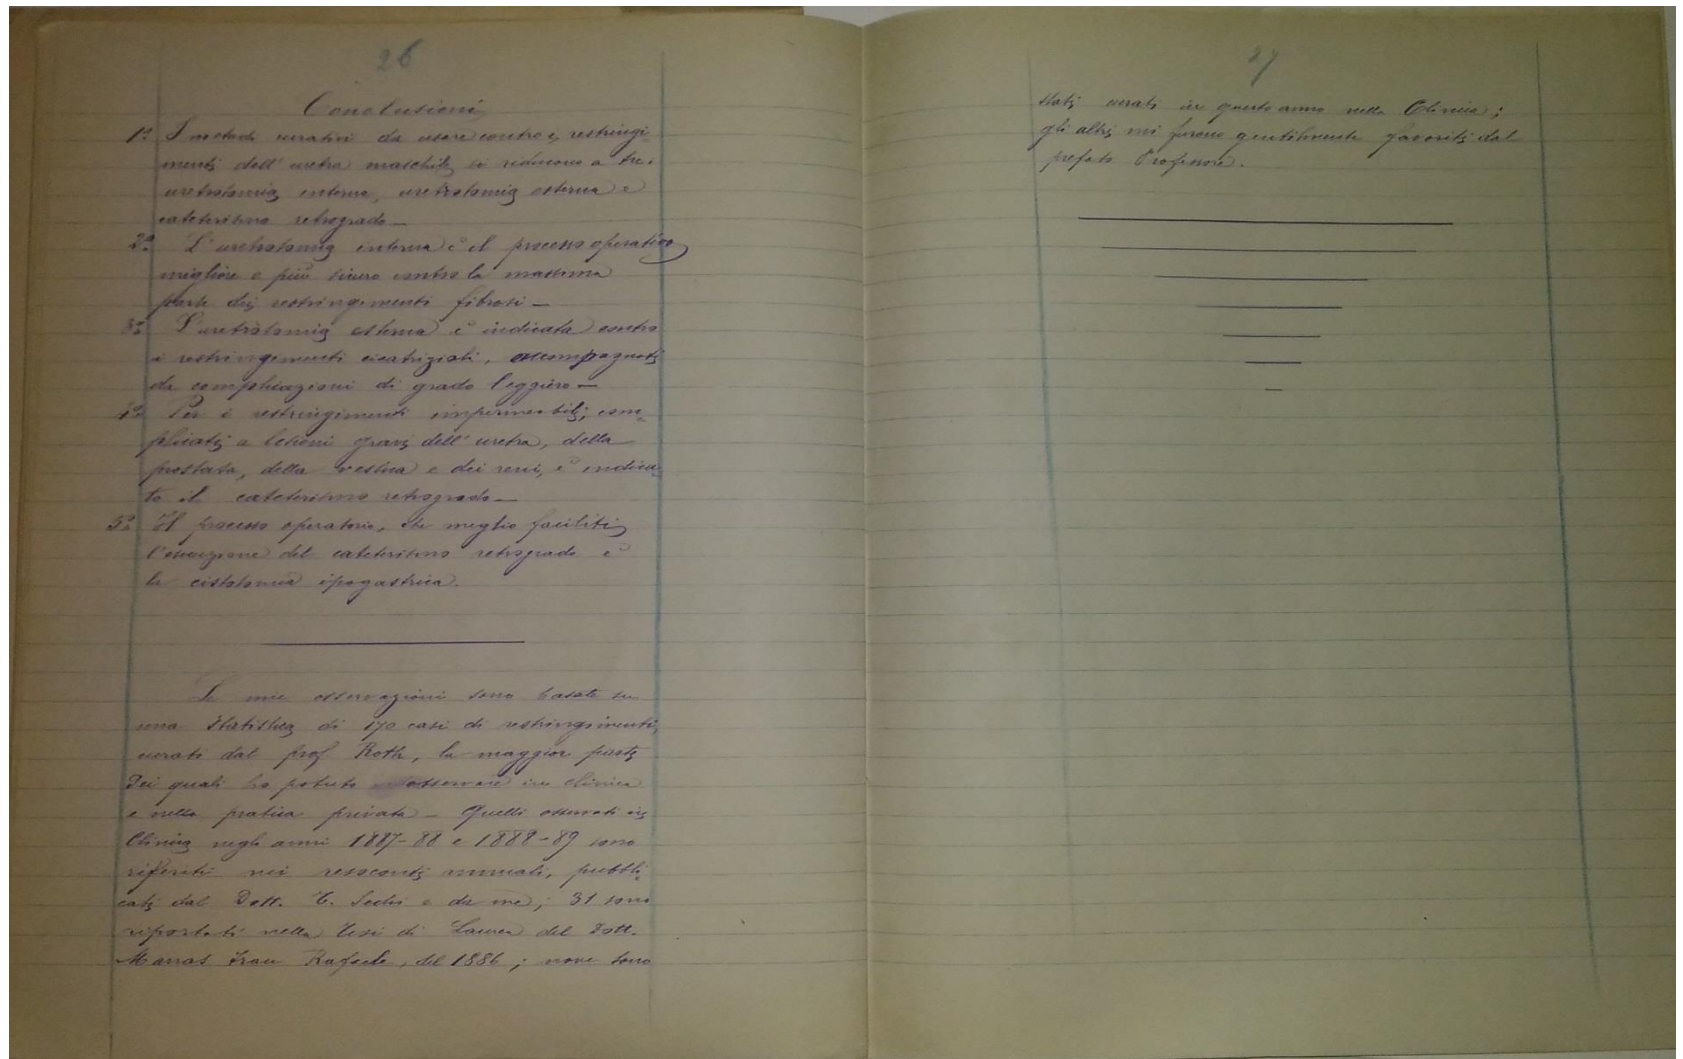 26
Conclusioni
1º I metodi curativi da usare contro i restringi-
menti dell'uretra maschile si riducono a tre:
uretrotomia interna, uretrotomia esterna e
cateterismo retrogrado —
2º L'uretrotomia interna è il processo operativo
migliore e più sicuro contro la massima
parte dei restringimenti fibrosi —
3º L'uretrotomia esterna è indicata contro
i restringimenti cicatriziali, accompagnati
da complicazioni di grado leggiero —
4º Per i restringimenti impermeabili, com-
plicati a lesioni gravi dell'uretra, della
prostata, della vescica e dei reni, è indica-
to il cateterismo retrogrado —
5º Il processo operatorio, che meglio faciliti
l'esecuzione del cateterismo retrogrado è
la cistotomia ipogastrica.
Le mie osservazioni sono basate su
una statistica di 170 casi di restringimenti,
curati dal prof Roth, la maggior parte
dei quali ho potuto osservare in clinica
e nella pratica privata — Quelli osservati in
Clinica negli anni 1887-88 e 1888-89 sono
riferiti nei resoconti annuali, pubbli-
cati dal Dott. e da me; 31 sono
riportati nella Tesi di Laurea del Dott.
Marras Frau Rafaele, del 1886; nove sono
27
stati curati in questo anno nella Clinica;
gli altri mi furono gentilmente favoriti dal
prefato Professore.